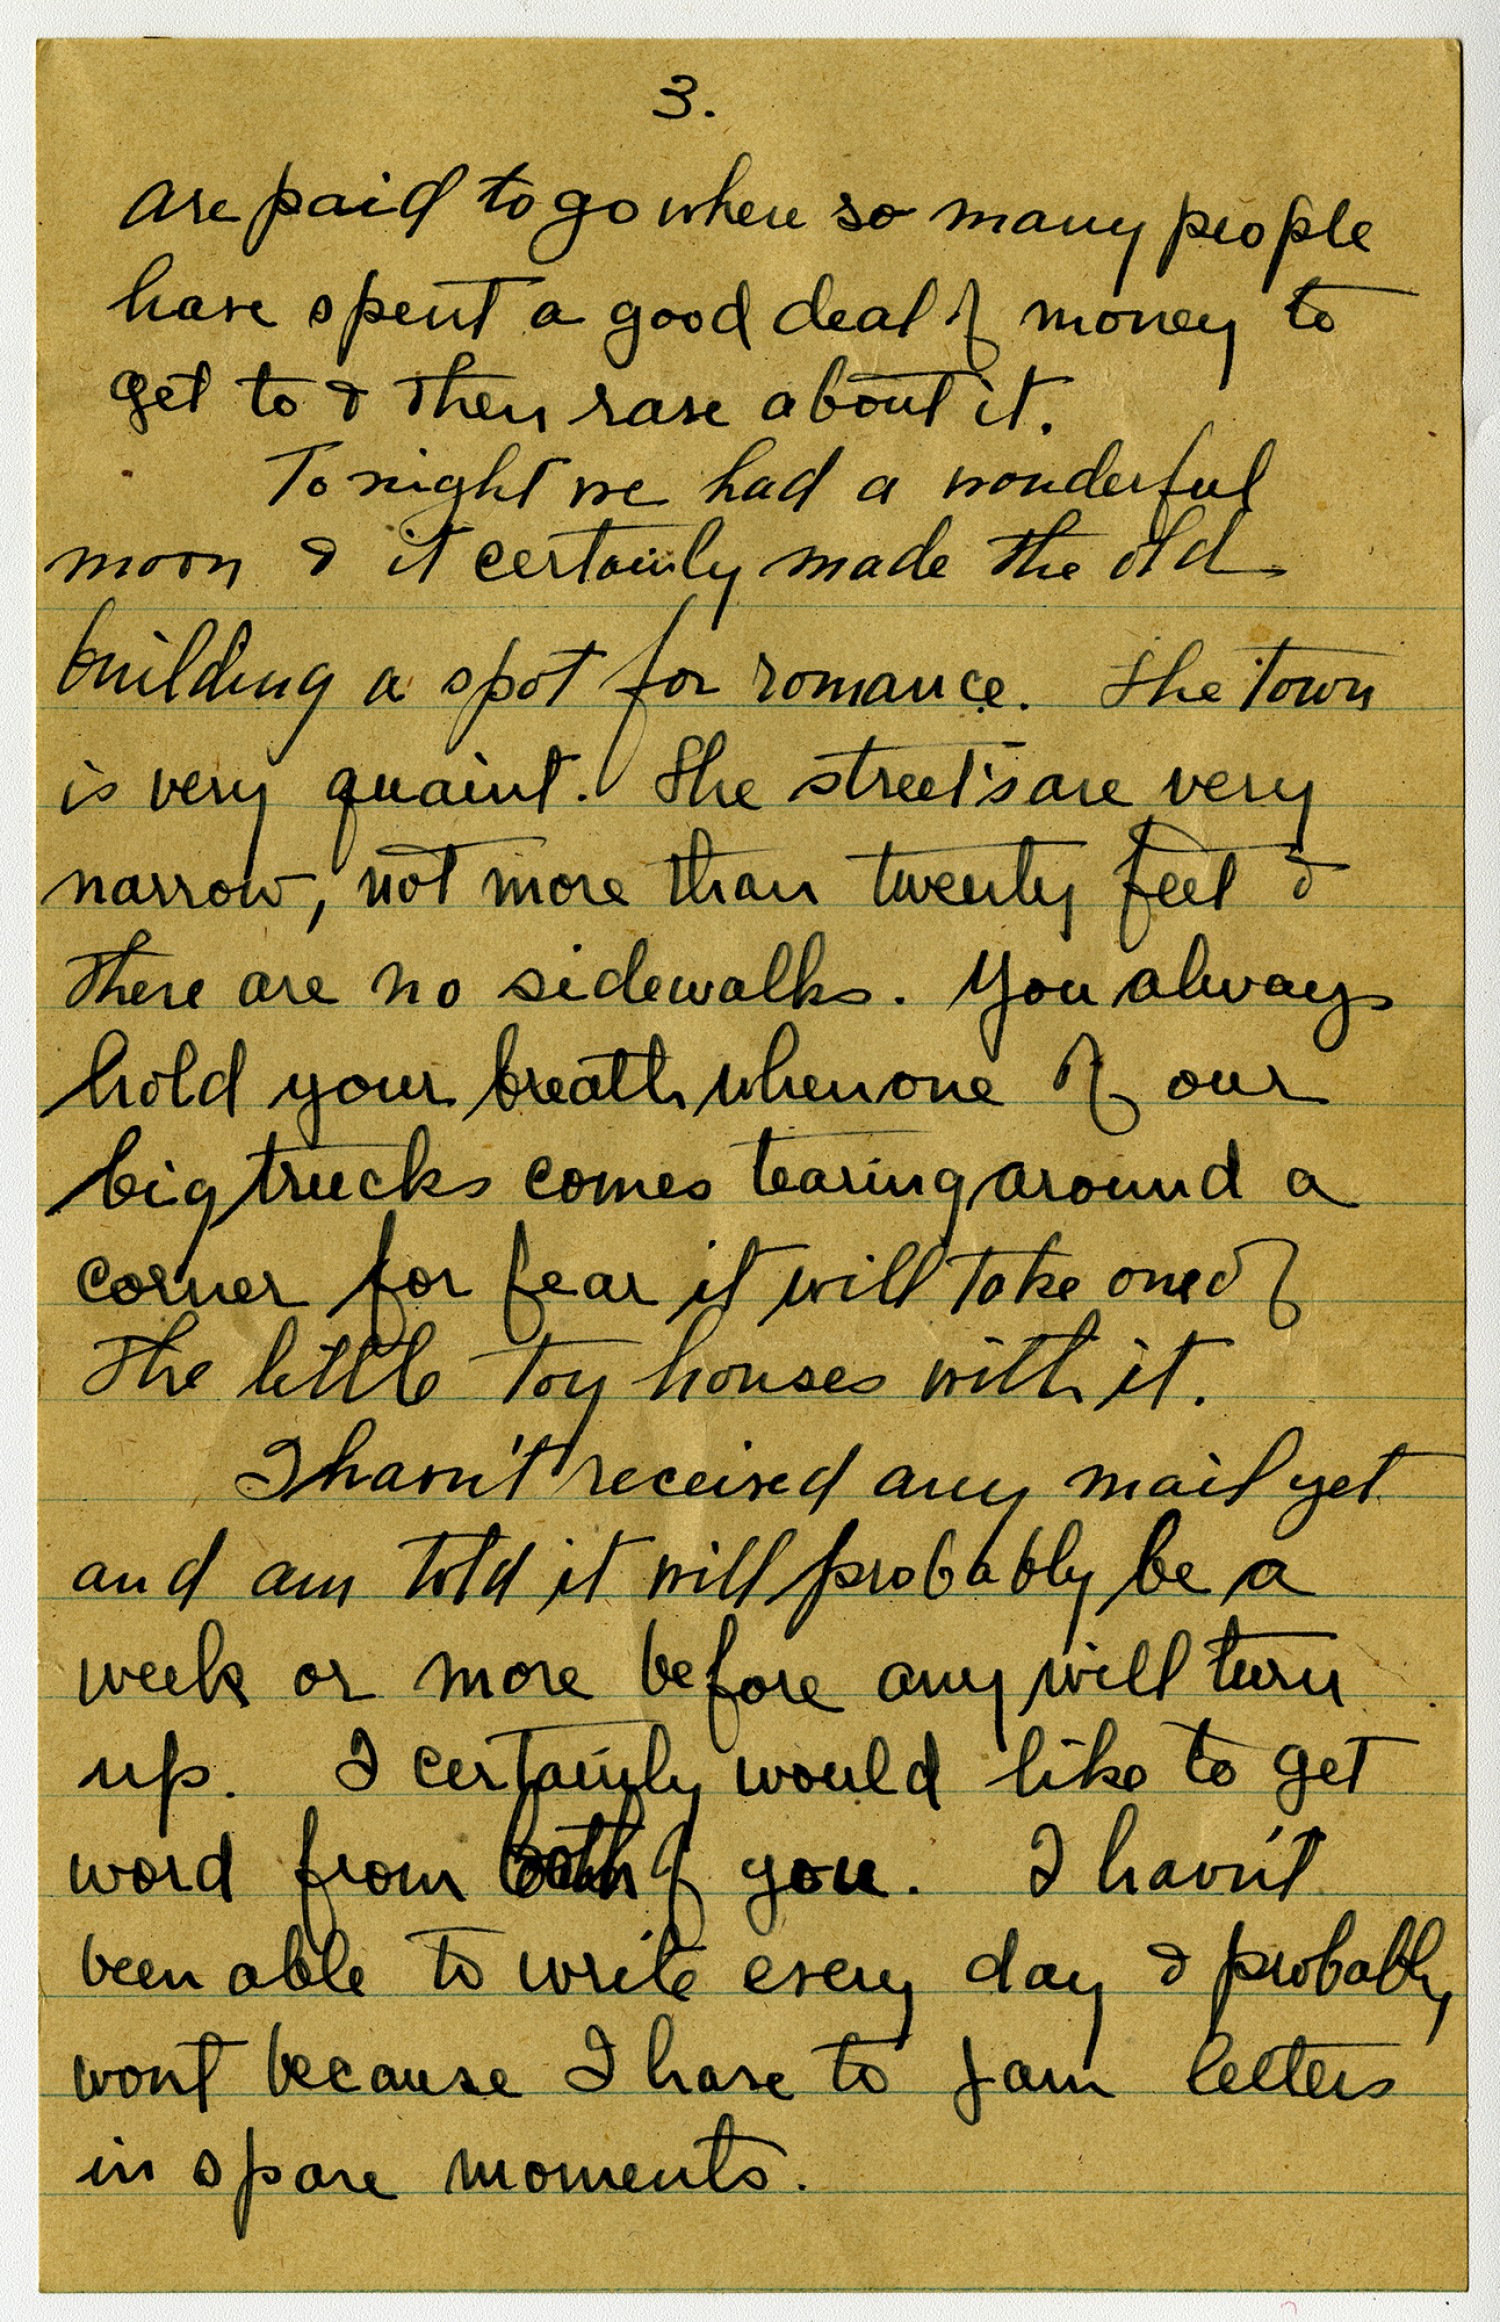 3.
are paid to go where so many people
have spent a good deal of money to
get to & then rave about it.
Tonight we had a wonderful
moon & it certainly made the old
building a spot for romance. The town
is very quaint. The streets are very
narrow, not more than twenty feet &
there are no sidewalks. You always
hold your breath when one of our
big trucks comes tearing around a
corner for fear it will take one of
the little toy houses with it.
I havn't received any mail yet
and am told it will probably be a
week or more before any will turn
up. I certainly would like to get
word from both of you. I havn't
been able to write every day & probably
wont because I have to jam letters
in spare moments.